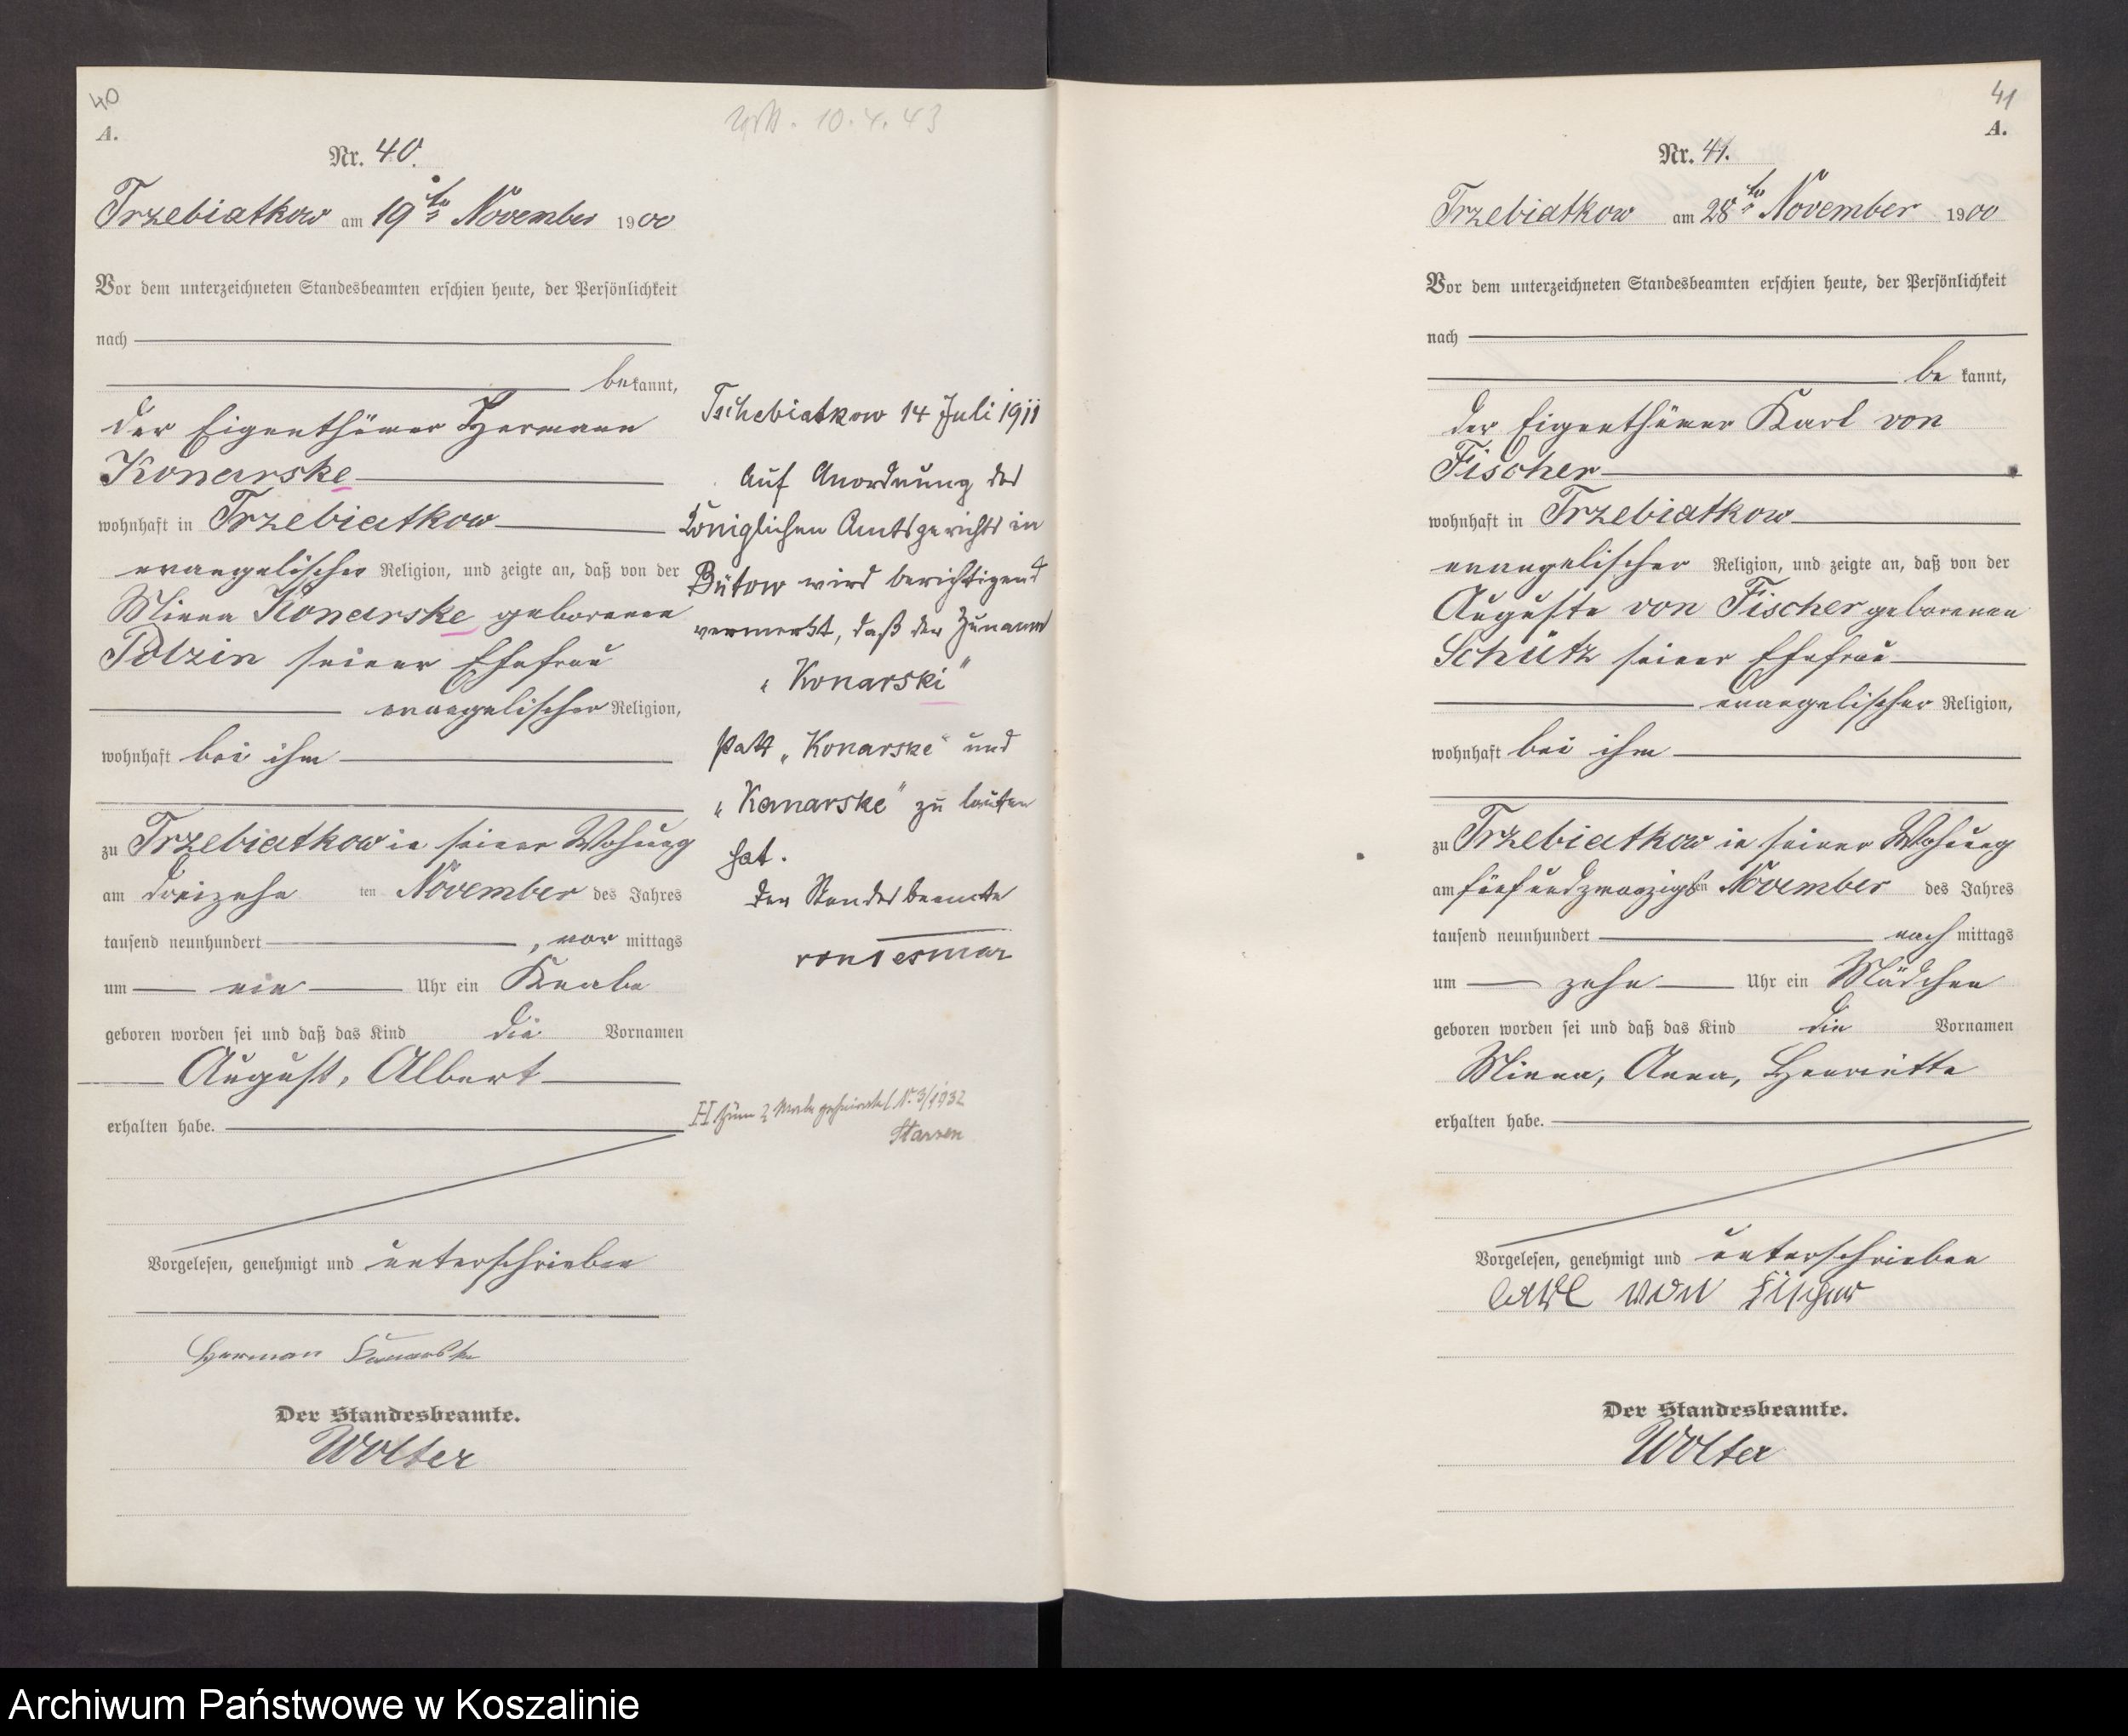 40
A.
Nr. 40.
Trzebiatkow am 19ten November 1900
Vor dem unterzeichneten Standesbeamten erschien heute, der Persönlichkeit
nach
bekannt,
der Eigenthümer Hermann
Konarske
wohnhaft in Trzebiatkow
evangelischer Religion, und zeigte an, daß von der
Minna Konarske geborenen
Polzin seiner Ehefrau
evangelischer Religion,
wohnhaft bei ihm
zu Trzebiatkow in seiner Wohung
am dreizehn ten November des Jahres
tausend neunhundert , vor mittags
um ein Uhr ein Knabe
geboren worden sei und daß das Kind die Vornamen
August, Albert
erhalten habe.
Vorgelesen, genehmigt und unterschrieben
Herman
Der Standesbeamte.
Wolter
10.4.43
Tschebiatkow 14 Juli 1911
Auf Anordnung des
Königlichen Amtsgerichts in
Bütow wird berichtigend
vermerkt, daß der Zuname
„Konarski"
statt „Konarske" und
„Kanarske" zu lauten
hat.
Der Standesbeamte
von Tesmar
H zum 2 Male geheiratet Nr. 3/1932
41
A.
Nr. 41.
Trzebiatkow am 28ten November 1900
Vor dem unterzeichneten Standesbeamten erschien heute, der Persönlichkeit
nach
be kannt,
der Eigenthümer Karl von
Fischer
wohnhaft in Trzebiatkow
evangelischer Religion, und zeigte an, daß von der
Auguste von Fischer geborenen
Schütz seiner Ehefrau
evangelischer Religion,
wohnhaft bei ihm
zu Trzebiatkow in seiner Wohung
am fünfundzwanzigsten November des Jahres
tausend neunhundert nach mittags
um zehn Uhr ein Mädchen
geboren worden sei und daß das Kind die Vornamen
Minna, Anna, Henriette
erhalten habe.
Vorgelesen, genehmigt und unterschrieben
Carl von Fischer
Der Standesbeamte.
Wolter
Archiwum Państwowe w Koszalinie